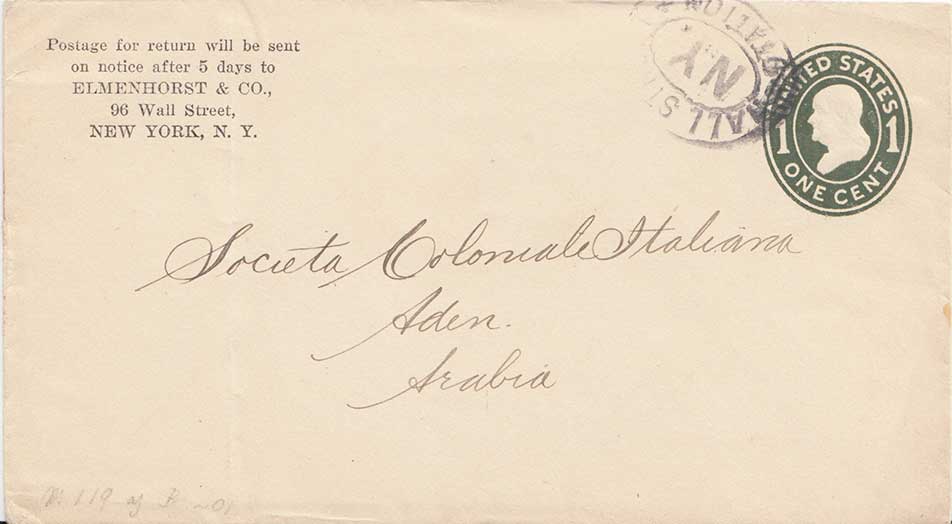 Postage for return will be sent
on notice after 5 days to
ELMENHORST & CO.,
96 Wall Street,
NEW YORK, N. Y.
WALL ST. STATION
N.Y.
UNITED STATES
1 1
ONE CENT
Societa Coloniale Italiana
Aden.
Arabia